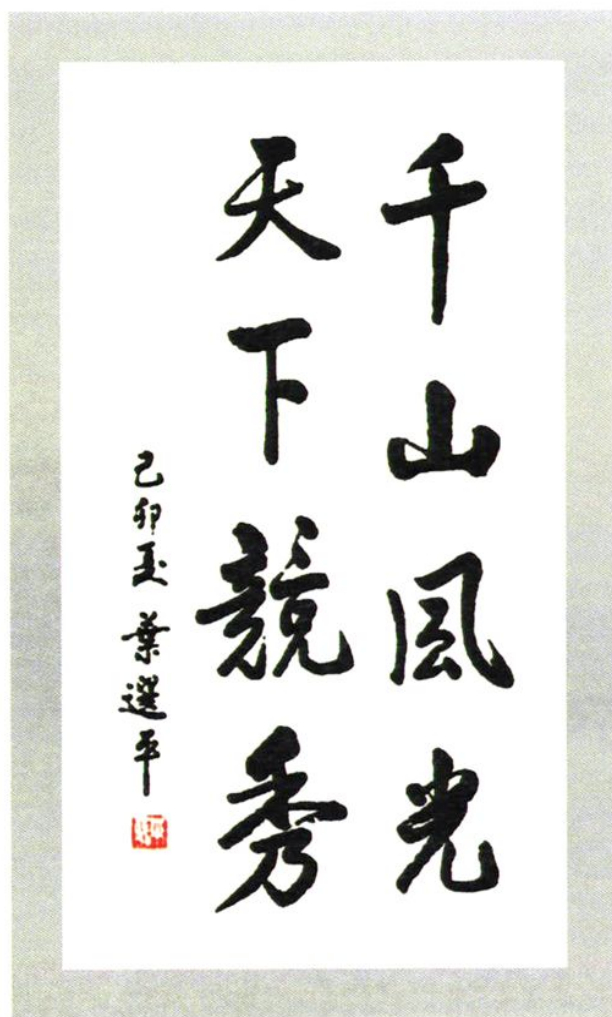 千山風光
天下競秀
己卯夏 葉選平